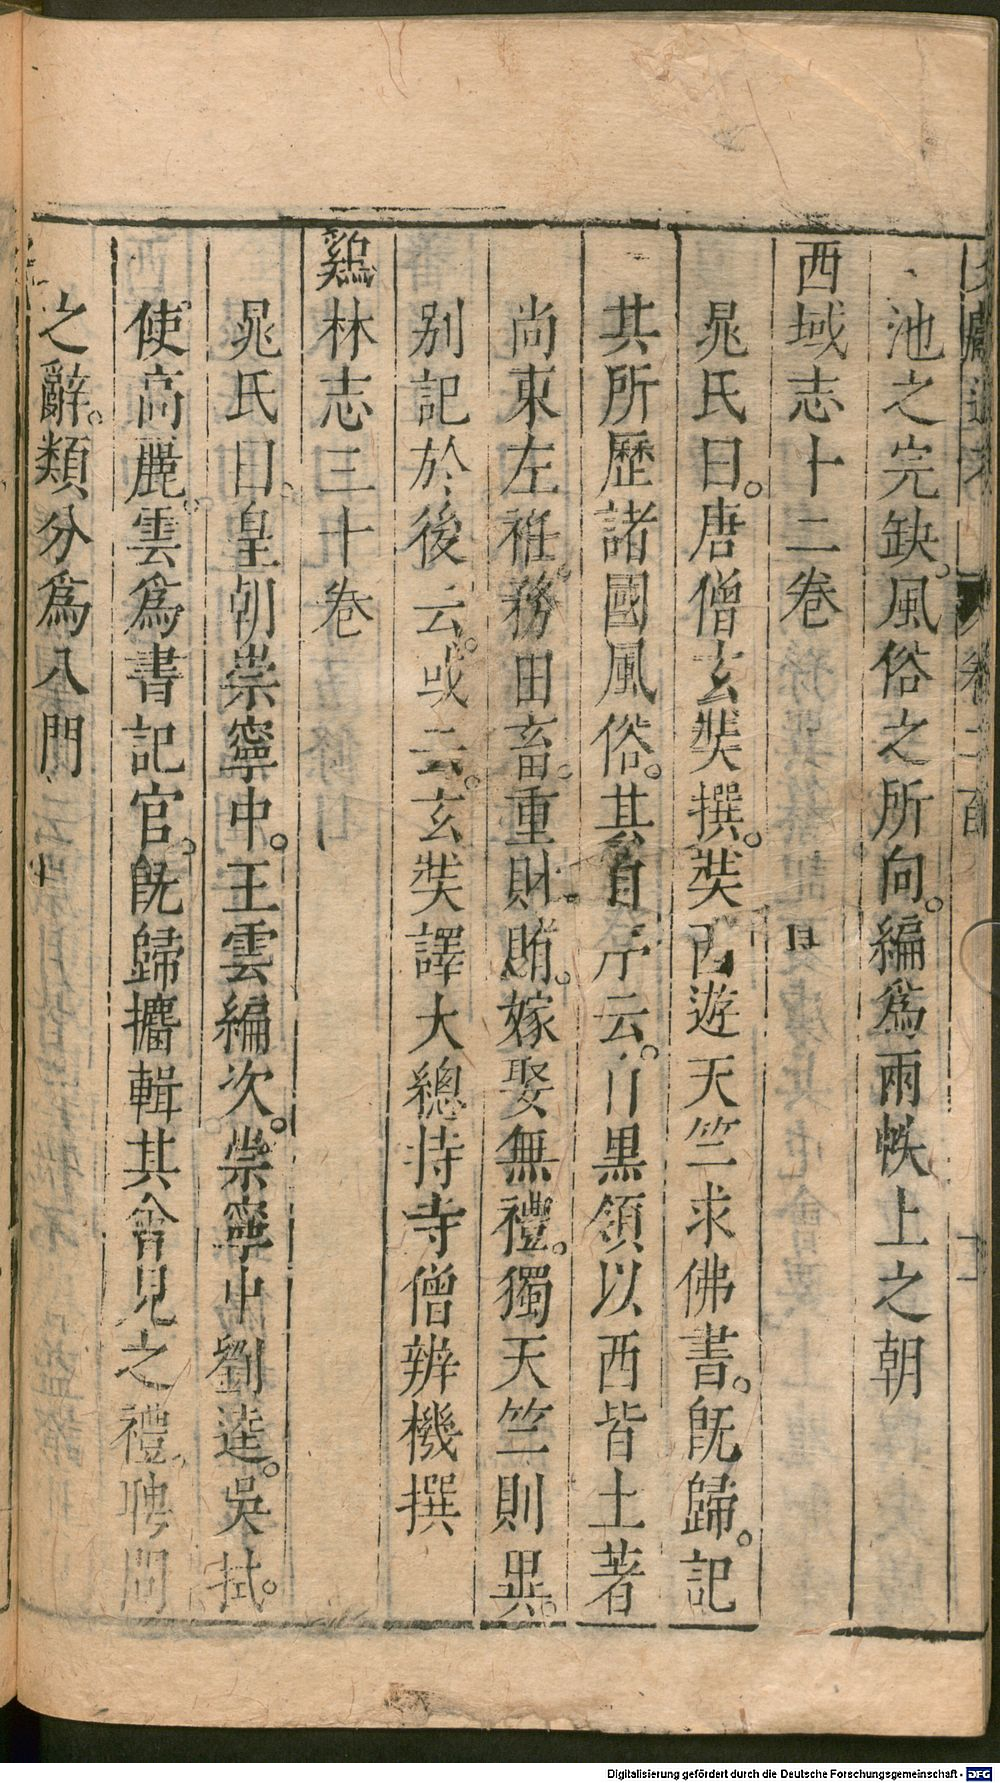 文獻通考 卷二百 十一
池之完缺。風俗之所向。編爲兩帙上之朝
西域志十二卷
晁氏曰。唐僧玄奘撰。奘西遊天竺求佛書。旣歸。記
其所歷諸國風俗。其自序云。黑領以西皆土著
尚東左衽。務田畜。重財賄。嫁娶無禮。獨天竺則異。
別記於後云。或云。玄奘譯大總持寺僧辨機撰
鷄林志三十卷
晁氏曰。皇朝崇寧中。王雲編次。崇寧中劉逵。吳拭。
使高麗。雲爲書記官。旣歸攟輯其會見之禮。聘問
之辭。類分爲八門
Digitalisierung gefördert durch die Deutsche Forschungsgemeinschaft - DFG